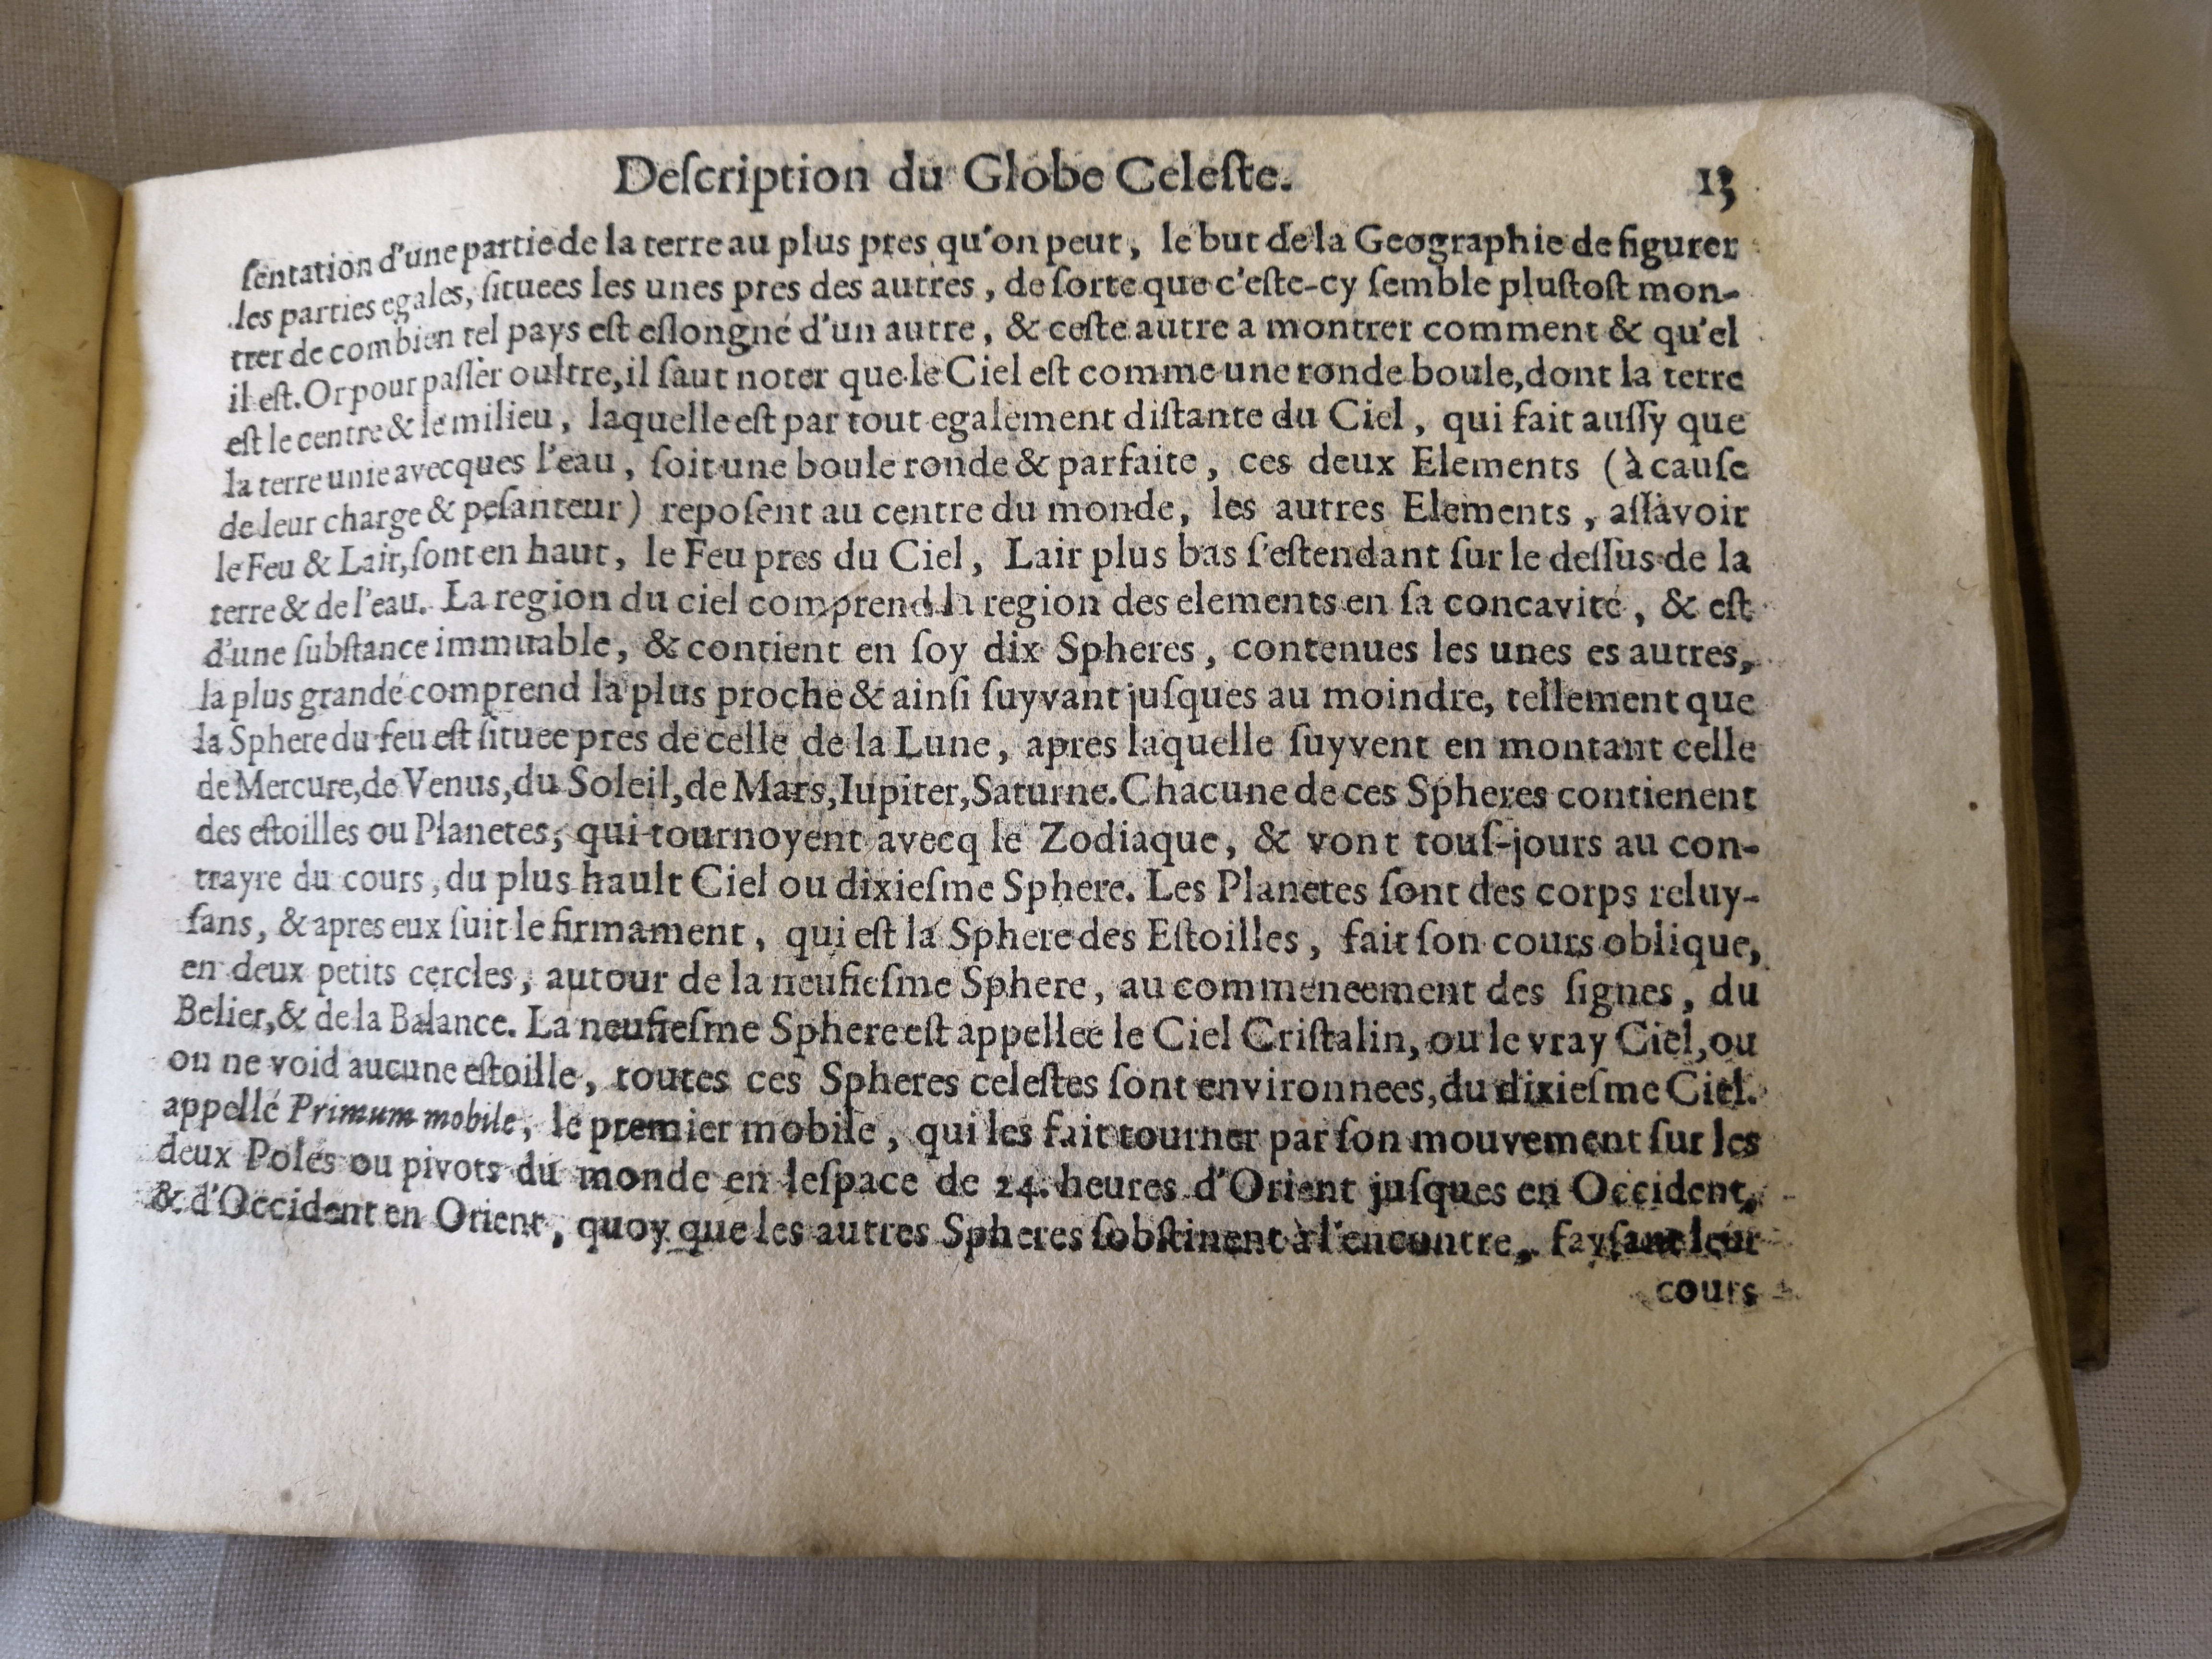 Deſcription du Globe Celeſte. 13
ſentation d'une partie de la terre au plus pres qu'on peut, le but de la Geographie de figurer
les parties egales, ſituees les unes pres des autres, de ſorte que c'eſte-cy ſemble pluſtoſt mon-
trer de combien tel pays eſt eſlongné d'un autre, & ceſte autre a montrer comment & qu'el
il eſt. Or pour paſſer oultre, il faut noter que le Ciel eſt comme une ronde boule, dont la terre
eſt le centre & le milieu, laquelle eſt par tout egalement diſtante du Ciel, qui fait auſſy que
la terre unie avecques l'eau, ſoit une boule ronde & parfaite, ces deux Elements (à cauſe
de leur charge & peſanteur) repoſent au centre du monde, les autres Elements, aſſavoir
le Feu & Lair, ſont en haut, le Feu pres du Ciel, Lair plus bas ſ'eſtendant ſur le deſſus de la
terre & de l'eau. La region du ciel comprend la region des elements en ſa concavité, & eſt
d'une ſubſtance immuable, & contient en ſoy dix Spheres, contenues les unes es autres,
la plus grande comprend la plus proche & ainſi ſuyvant juſques au moindre, tellement que
la Sphere du feu eſt ſituee pres de celle de la Lune, apres laquelle ſuyvent en montant celle
de Mercure, de Venus, du Soleil, de Mars, Iupiter, Saturne. Chacune de ces Spheres contienent
des eſtoilles ou Planetes, qui tournoyent avecq le Zodiaque, & vont touſ-jours au con-
trayre du cours, du plus hault Ciel ou dixieſme Sphere. Les Planetes ſont des corps reluy-
ſans, & apres eux ſuit le firmament, qui eſt la Sphere des Eſtoilles, fait ſon cours oblique,
en deux petits cercles, autour de la neufieſme Sphere, au commeneement des ſignes, du
Belier, & de la Balance. La neufieſme Sphere eſt appellee le Ciel Criſtalin, ou le vray Ciel, ou
on ne void aucune eſtoille, toutes ces Spheres celeſtes ſont environnees, du dixieſme Ciel.
appellé Primum mobile, le premier mobile, qui les fait tourner par ſon mouvement ſur les
deux Poles ou pivots du monde en leſpace de 24. heures d'Orient juſques en Occident,
& d'Occident en Orient, quoy que les autres Spheres ſobſtinent à l'encontre, fayſant leur
cours